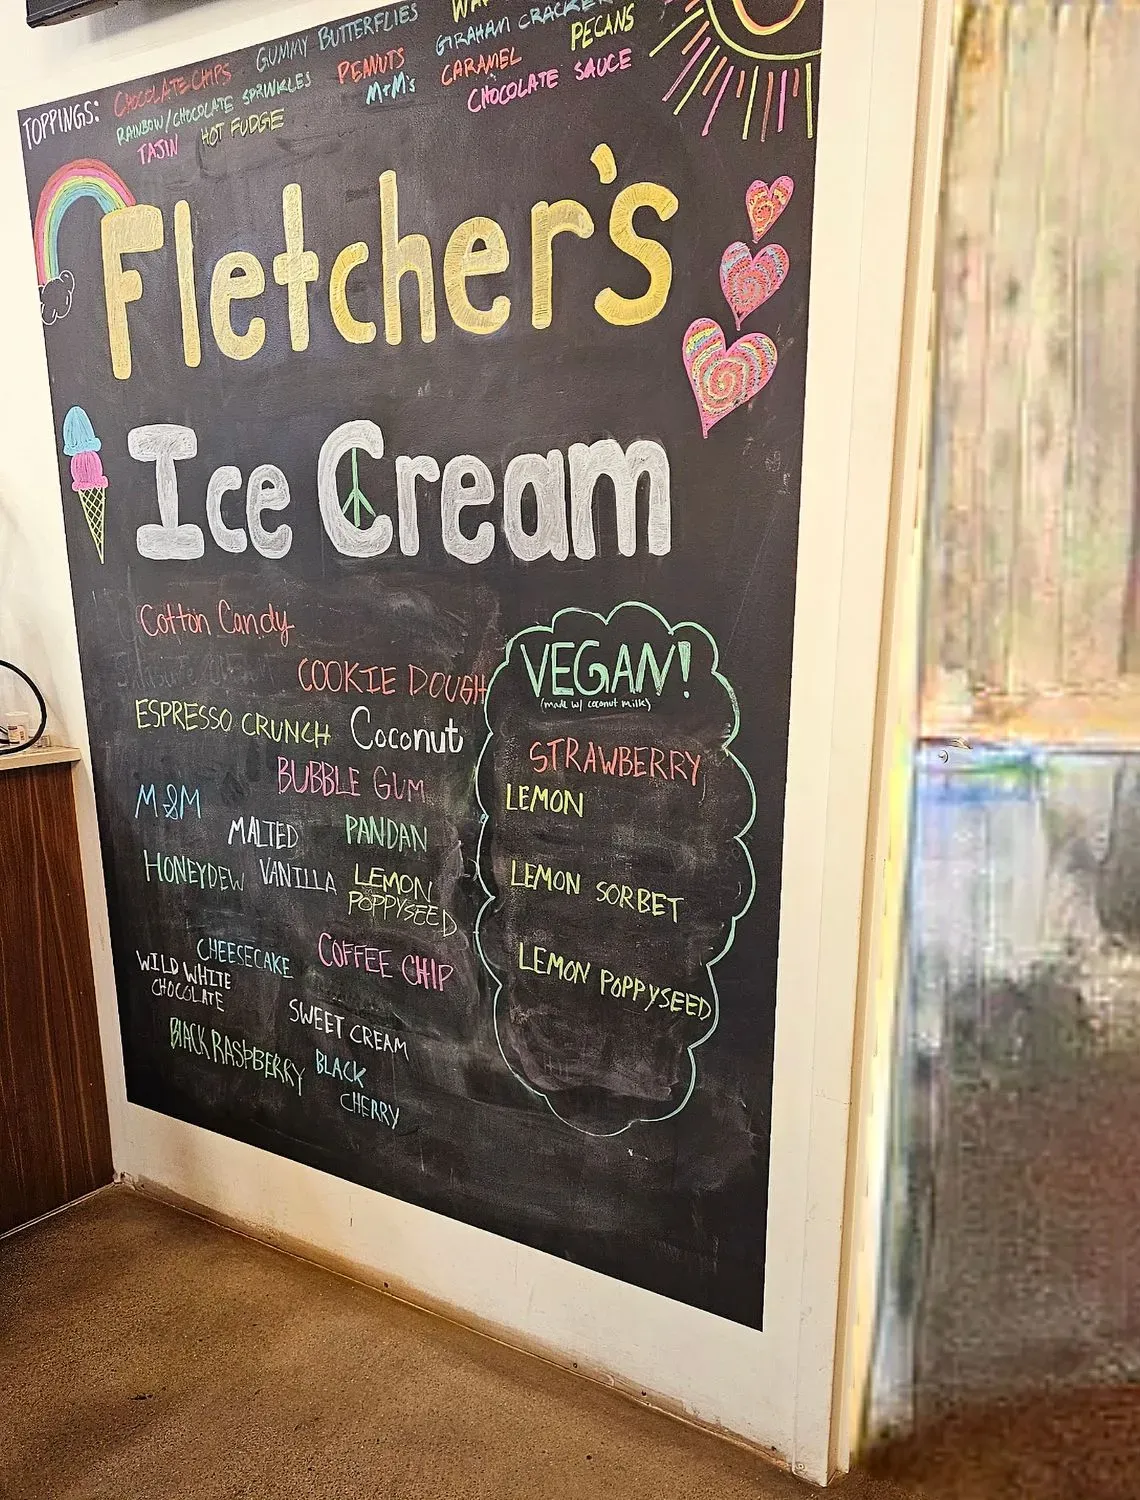 GUMMY BUTTERFLIES
GRAHAM CRACKER
PECANS
TOPPINGS: CHOCOLATE CHIPS
PEANUTS
CARAMEL
RAINBOW/CHOCOLATE SPRINKLES
M+M's
CHOCOLATE SAUCE
TAJIN
HOT FUDGE
Fletcher's
Ice Cream
Cotton Candy
COOKIE DOUGH
ESPRESSO CRUNCH
Coconut
BUBBLE GUM
M&M
MALTED
PANDAN
HONEYDEW
VANILLA
LEMON
POPPYSEED
CHEESECAKE
COFFEE CHIP
WILD WHITE
CHOCOLATE
SWEET CREAM
BLACK RASPBERRY
BLACK
CHERRY
VEGAN!
(made w/ coconut milk)
STRAWBERRY
LEMON
LEMON SORBET
LEMON POPPYSEED